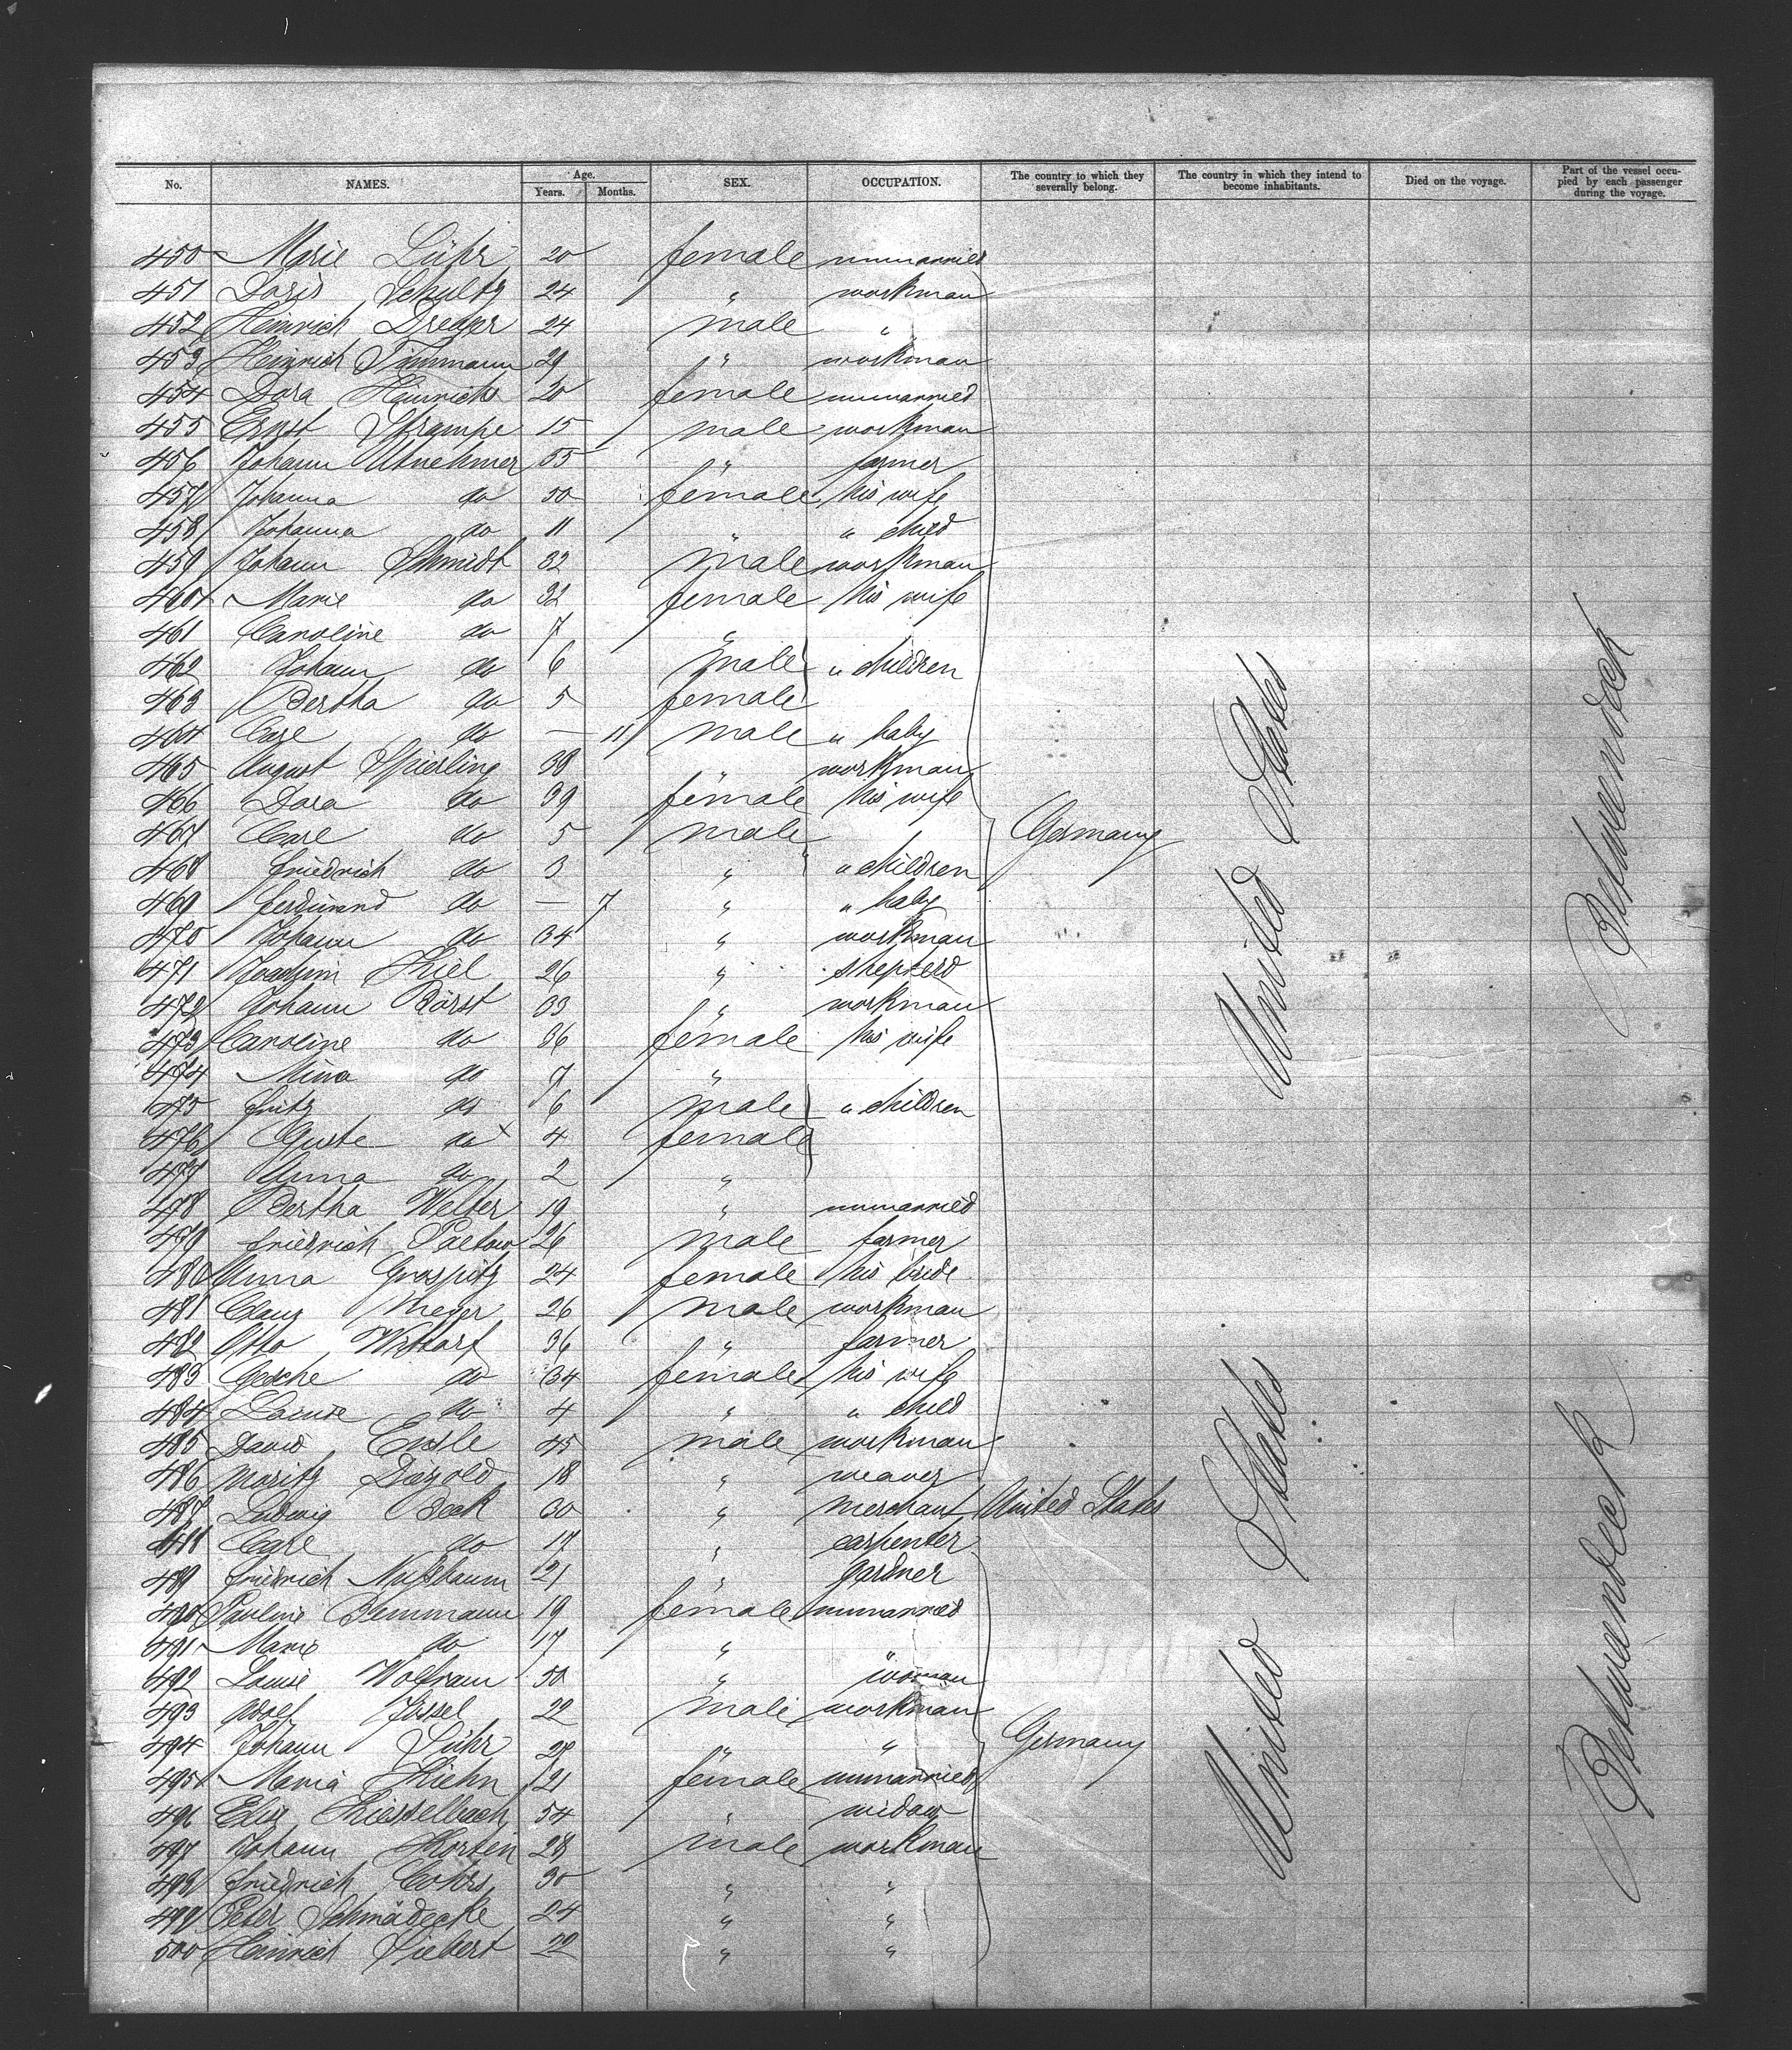 No. NAMES. Age. Years. Months. SEX. OCCUPATION. The country to which they severally belong. The country in which they intend to become inhabitants. Died on the voyage. Part of the vessel occupied by each passenger during the voyage.
450 Marie Lühr 20 female unmarried
451 Doris Schultz 24 " workman
452 Heinrich Dreger 24 male "
453 Heinrich Timmann 29 " workman
454 Dora Heinrichs 20 female unmarried
455 Ernst Strampe 15 male workman
456 Johann 55 " farmer
457 Johanna do 50 female his wife
458 Johanna do 11 " " child
459 Johann Schmidt 32 male workman
460 Marie do 32 female his wife
461 Caroline do 7 "
462 Johann do 6 male " children
463 Bertha do 5 female
464 Carl do — 11 male " baby
465 August Spierling 38 " workman
466 Dora do 39 female his wife
467 Carl do 5 male Germany United States Betweendeck
468 Friedrich do 3 " " children
469 Ferdinand do — 7 " " baby
470 Johann do 34 " workman
471 Joachim Thiel 26 " shepherd
472 Johann Börst 33 " workman
473 Caroline do 36 female his wife
474 Mina do 7 "
475 Fritz do 6 male " children
476 Guste do x 4 female
477 Anna do 2 "
478 Bertha Welter 19 " unmarried
479 Friedrich Paetow 26 male farmer
480 Anna 24 female his bride
481 Claus Meyer 26 male workman
482 Otto Witthorf 36 " farmer
483 Gesche do 34 female his wife
484 Louise do 4 " " child
485 David Ensle 45 male workman
486 Moritz 18 " weaver
487 Ludwig Beck 60 " merchant United States
488 Carl do 17 " carpenter
489 Friedrich Nußbaum 21 " gardner
490 Pauline Bemmann 19 female unmarried
491 Marie do 17 " "
492 Louise Wolfram 50 " woman
493 Adolf Jossel 22 male workman
494 Johann Lühr 28 " " Germany United States Betweendeck
495 Maria Thiehn 21 female unmarried
496 Elis Thiesselbach 54 " widow
497 Johann Horten 28 male workman
498 Friedrich Cohrs 30 " "
499 Peter Schmädecke 24 " "
500 Heinrich Siebert 22 " "